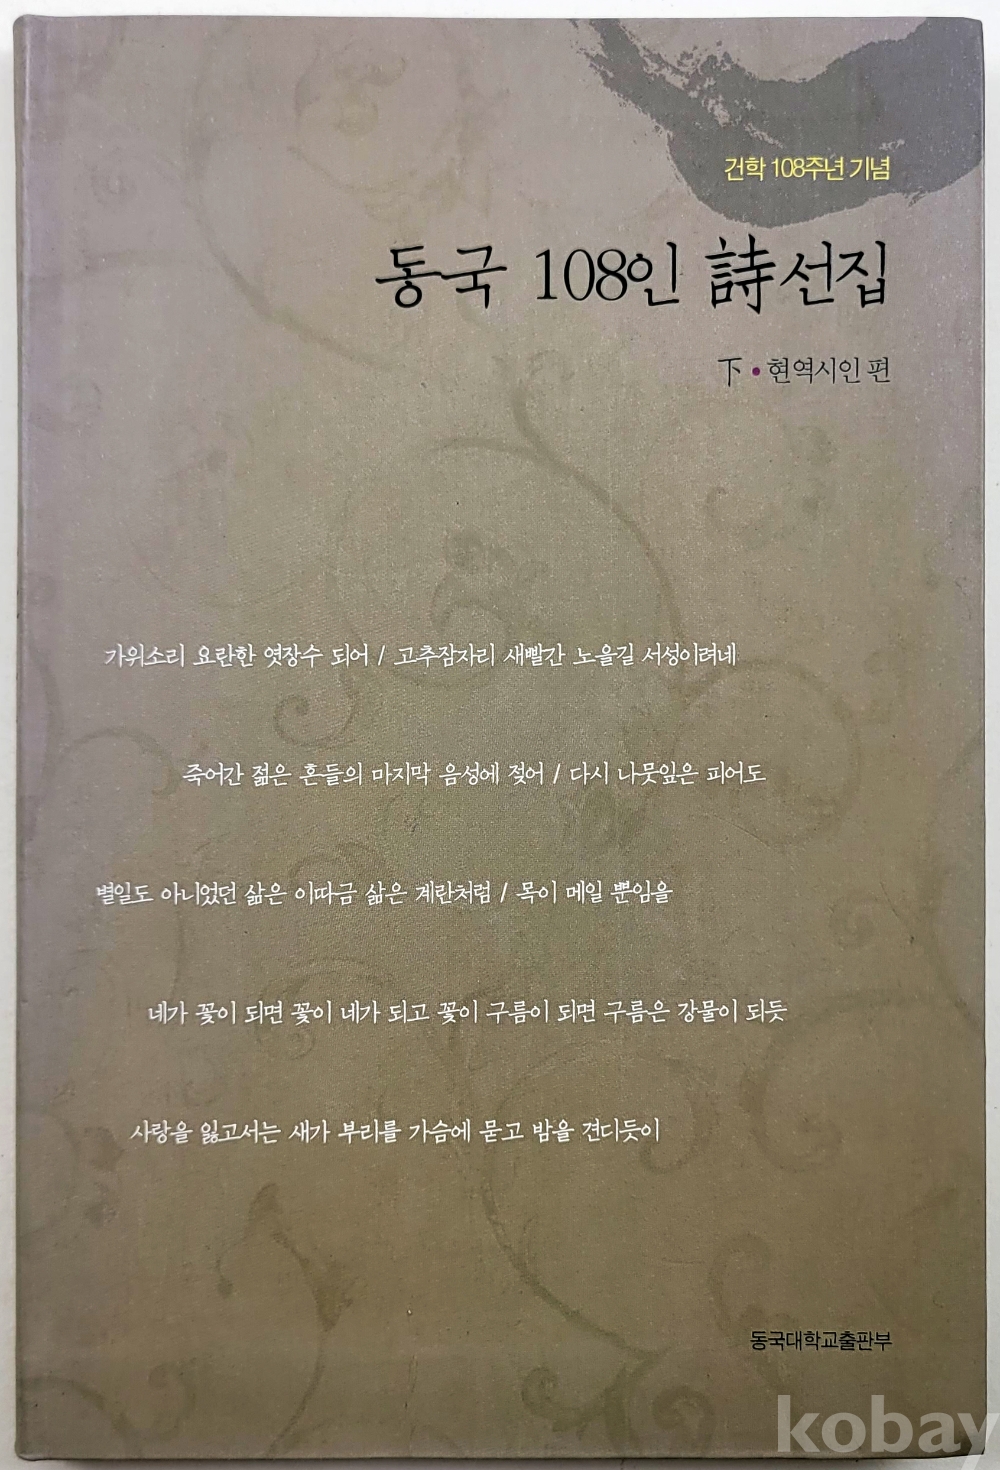 건학 108주년 기념
동국 108인 詩선집
下 • 현역시인 편
가위소리 요란한 엿장수 되어 / 고추잠자리 새빨간 노을길 서성이려네
죽어간 젊은 혼들의 마지막 음성에 젖어 / 다시 나뭇잎은 피어도
별일도 아니었던 삶은 이따금 삶은 계란처럼 / 목이 메일 뿐임을
네가 꽃이 되면 꽃이 네가 되고 꽃이 구름이 되면 구름은 강물이 되듯
사랑을 잃고서는 새가 부리를 가슴에 묻고 밤을 견디듯이
동국대학교출판부
kobay